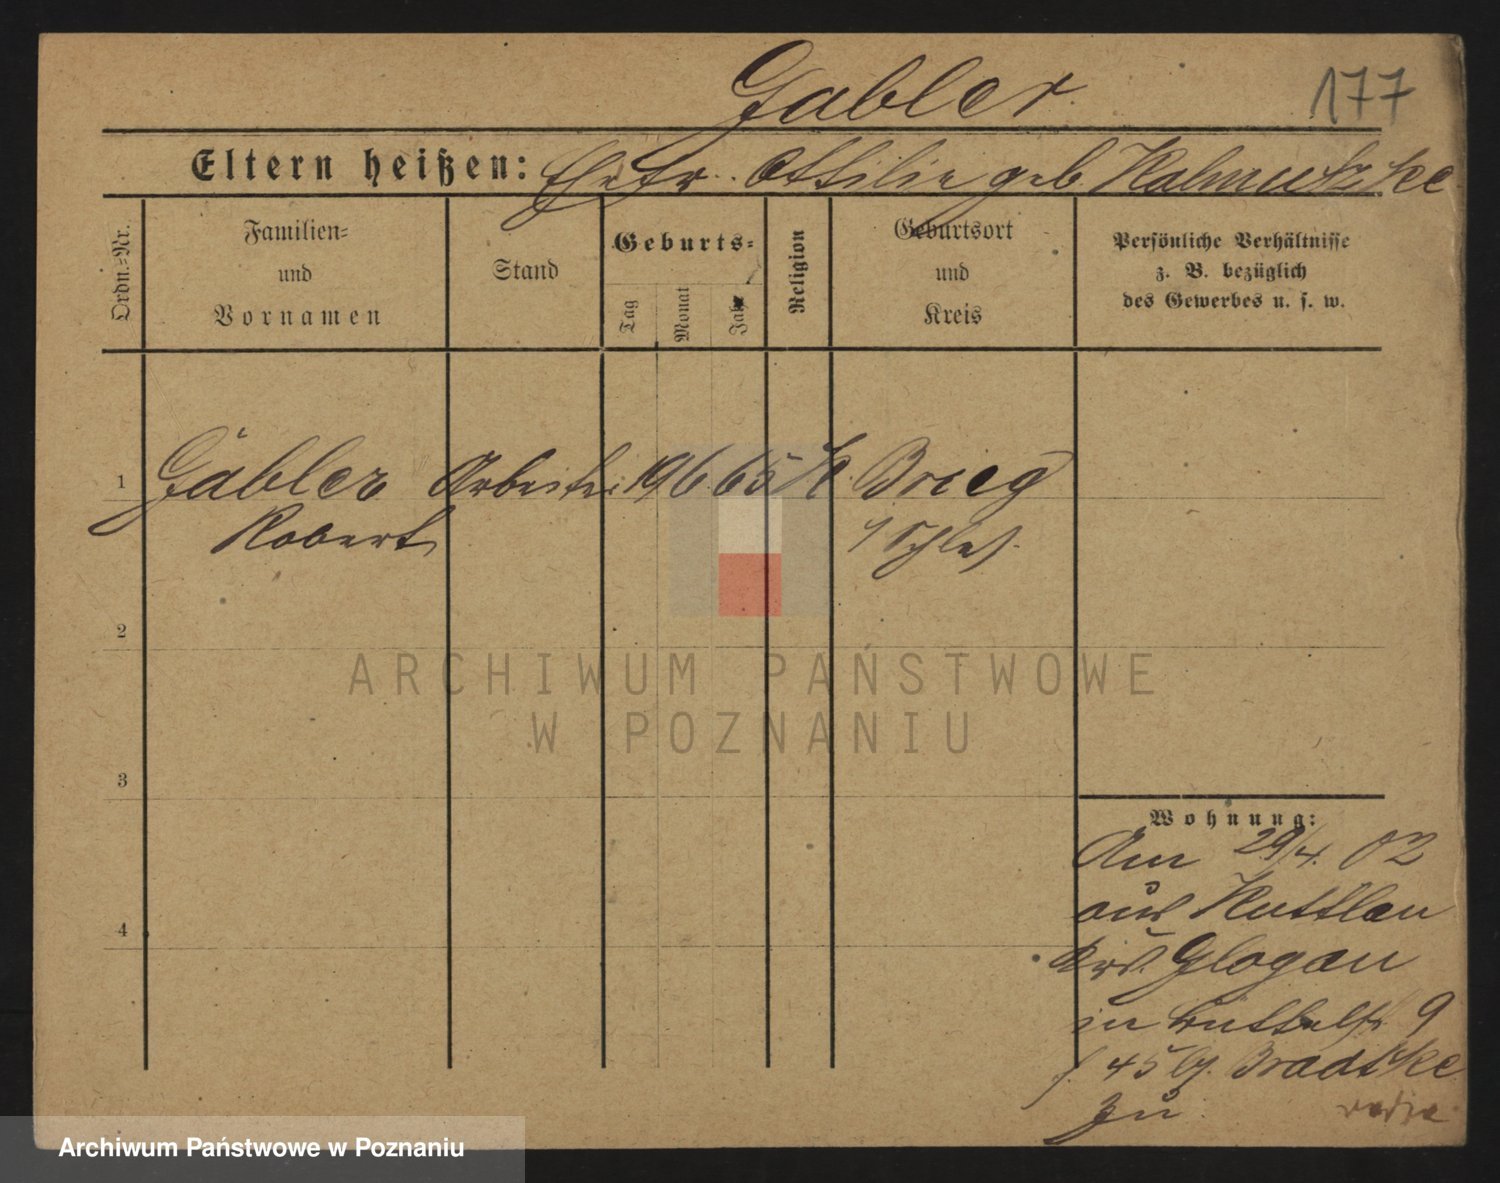 Gabler
177
Eltern heißen: Ehefr. Ottilie geb.
Ordn.-Nr.
Familien-
und
Vornamen
Stand
Geburts-
Tag
Monat
Jahr
Religion
Geburtsort
und
Kreis
Persönliche Verhältnisse
z. B. bezüglich
des Gewerbes u. s. w.
1
Gäbler Arbeiter 19 6 65 K. Brieg
Robert
i/ Schles.
2
ARCHIWUM PAŃSTWOWE
W POZNANIU
3
Wohnung:
Am 29/4. 02
aus Kuttlau
Krs. Glogau
in 9
f. 45 bei Bradtke
zu
4
Archiwum Państwowe w Poznaniu